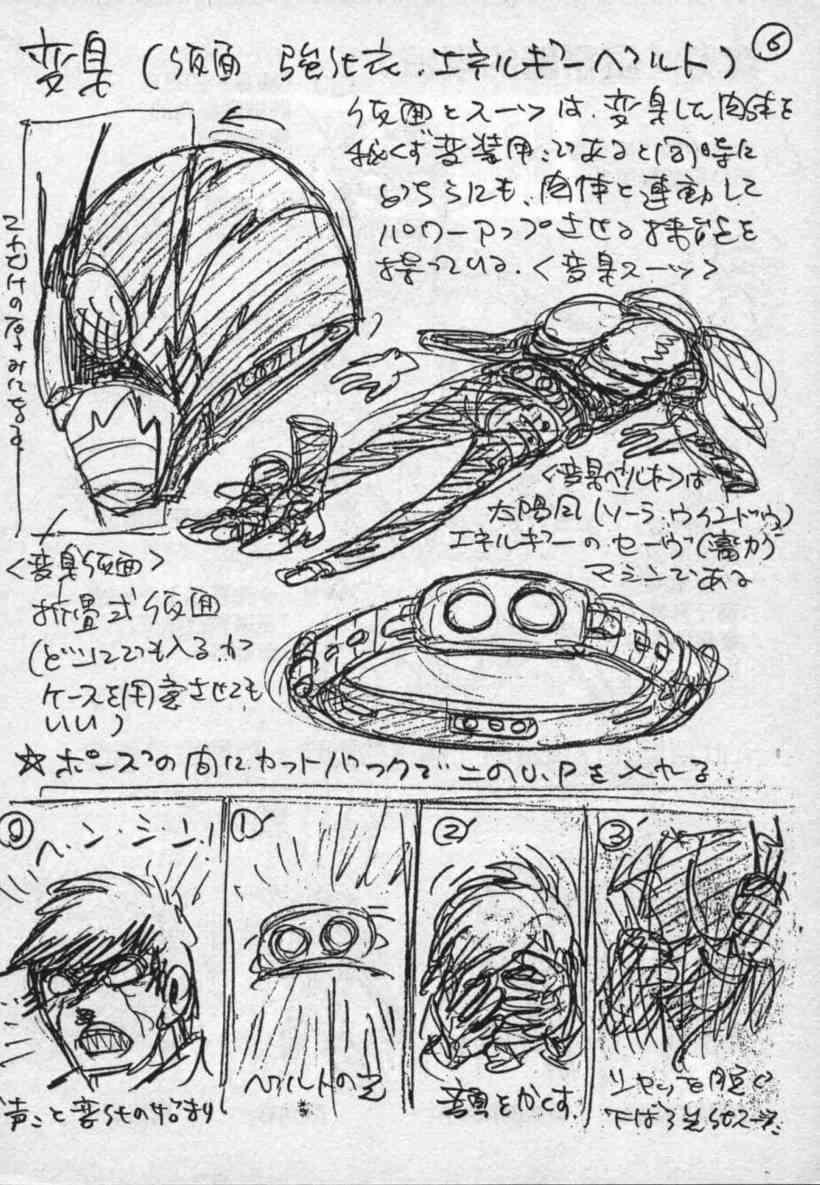 ⑥
変身（仮面 強化衣・エネルギーベルト）
仮面とスーツは、変身した肉体を
かくす変装用であると同時に
どちらにも、肉体と連動して
パワーアップさせる機能を
持っている.〈変身スーツ〉
これだけの厚みになる
〈変身ベルト〉は
太陽風（ソーラーウインドゥ）
エネルギーのセーヴ（蓄力）
マシンである
〈変身仮面〉
折畳式仮面
（どこにでも入るが
ケースを用意させても
いい）
☆ポーズの間にカットバックでこのU.Pを入れる.
⓪
ヘン・シン!
声と変化の始まり
①
ベルトの
②
変貌をかくす
③
シャツを脱ぐ
下は強化スーツ